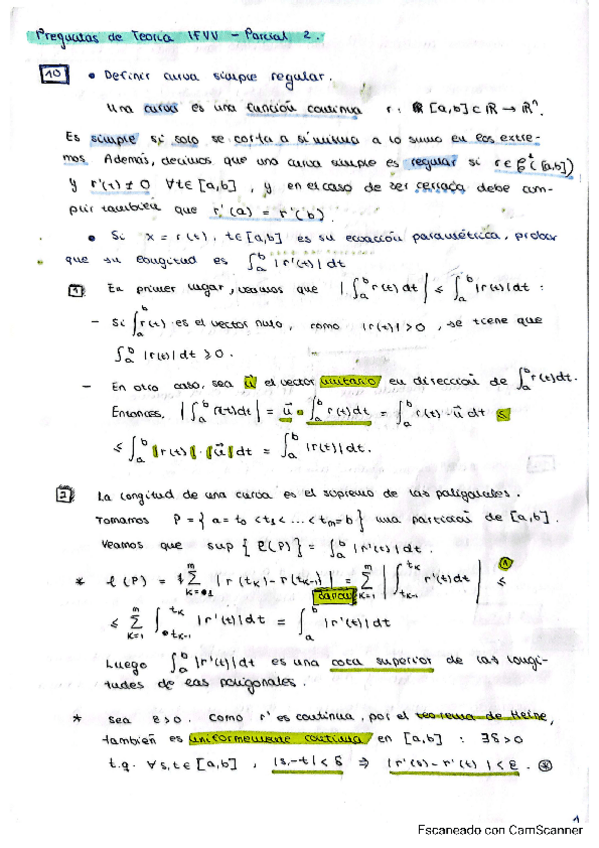 Preguntas de Teoría IFVV - Parcial 2.
10 • Definir curva simple regular.
Una curva es una función continua r: [a,b] ⊂ ℝ → ℝⁿ.
Es simple si solo se corta a sí misma a lo sumo en los extre-
mos. Además, decimos que una curva simple es regular si r ∈ C¹([a,b])
y r'(t) ≠ 0 ∀t ∈ [a,b], y en el caso de ser cerrada debe cum-
plir también que r'(a) = r'(b).
• Si x = r(t), t ∈ [a,b] es su ecuación paramétrica, probar
que su longitud es ∫ₐᵇ |r'(t)| dt
1 En primer lugar, veamos que |∫ₐᵇ r(t) dt| ≤ ∫ₐᵇ |r(t)| dt :
- Si ∫ₐᵇ r(t) es el vector nulo, como |r(t)| > 0, se tiene que
∫ₐᵇ |r(t)| dt ≥ 0.
- En otro caso, sea u⃗ el vector unitario en dirección de ∫ₐᵇ r(t) dt.
Entonces, |∫ₐᵇ r(t) dt| = u⃗ • ∫ₐᵇ r(t) dt = ∫ₐᵇ r(t) · u⃗ dt ≤
≤ ∫ₐᵇ |r(t)| · |u⃗| dt = ∫ₐᵇ |r(t)| dt.
2 La longitud de una curva es el supremo de las poligonales.
Tomamos P = { a = t₀ < t₁ < ... < tₘ = b } una partición de [a,b].
Veamos que sup { ℓ(P) } = ∫ₐᵇ |r'(t)| dt.
* ℓ(P) = Σ |r(tₖ) - r(tₖ₋₁)| = Σ |∫ r'(t) dt| ≤ 1
Barrow
≤ Σ ∫ |r'(t)| dt = ∫ₐᵇ |r'(t)| dt
Luego ∫ₐᵇ |r'(t)| dt es una cota superior de las longi-
tudes de las poligonales.
* Sea ε > 0. Como r' es continua, por el teorema de Heine,
también es uniformemente continua en [a,b] : ∃δ > 0
t.q. ∀s,t ∈ [a,b], |s-t| < δ ⇒ |r'(s) - r'(t)| < ε. *
1
Escaneado con CamScanner